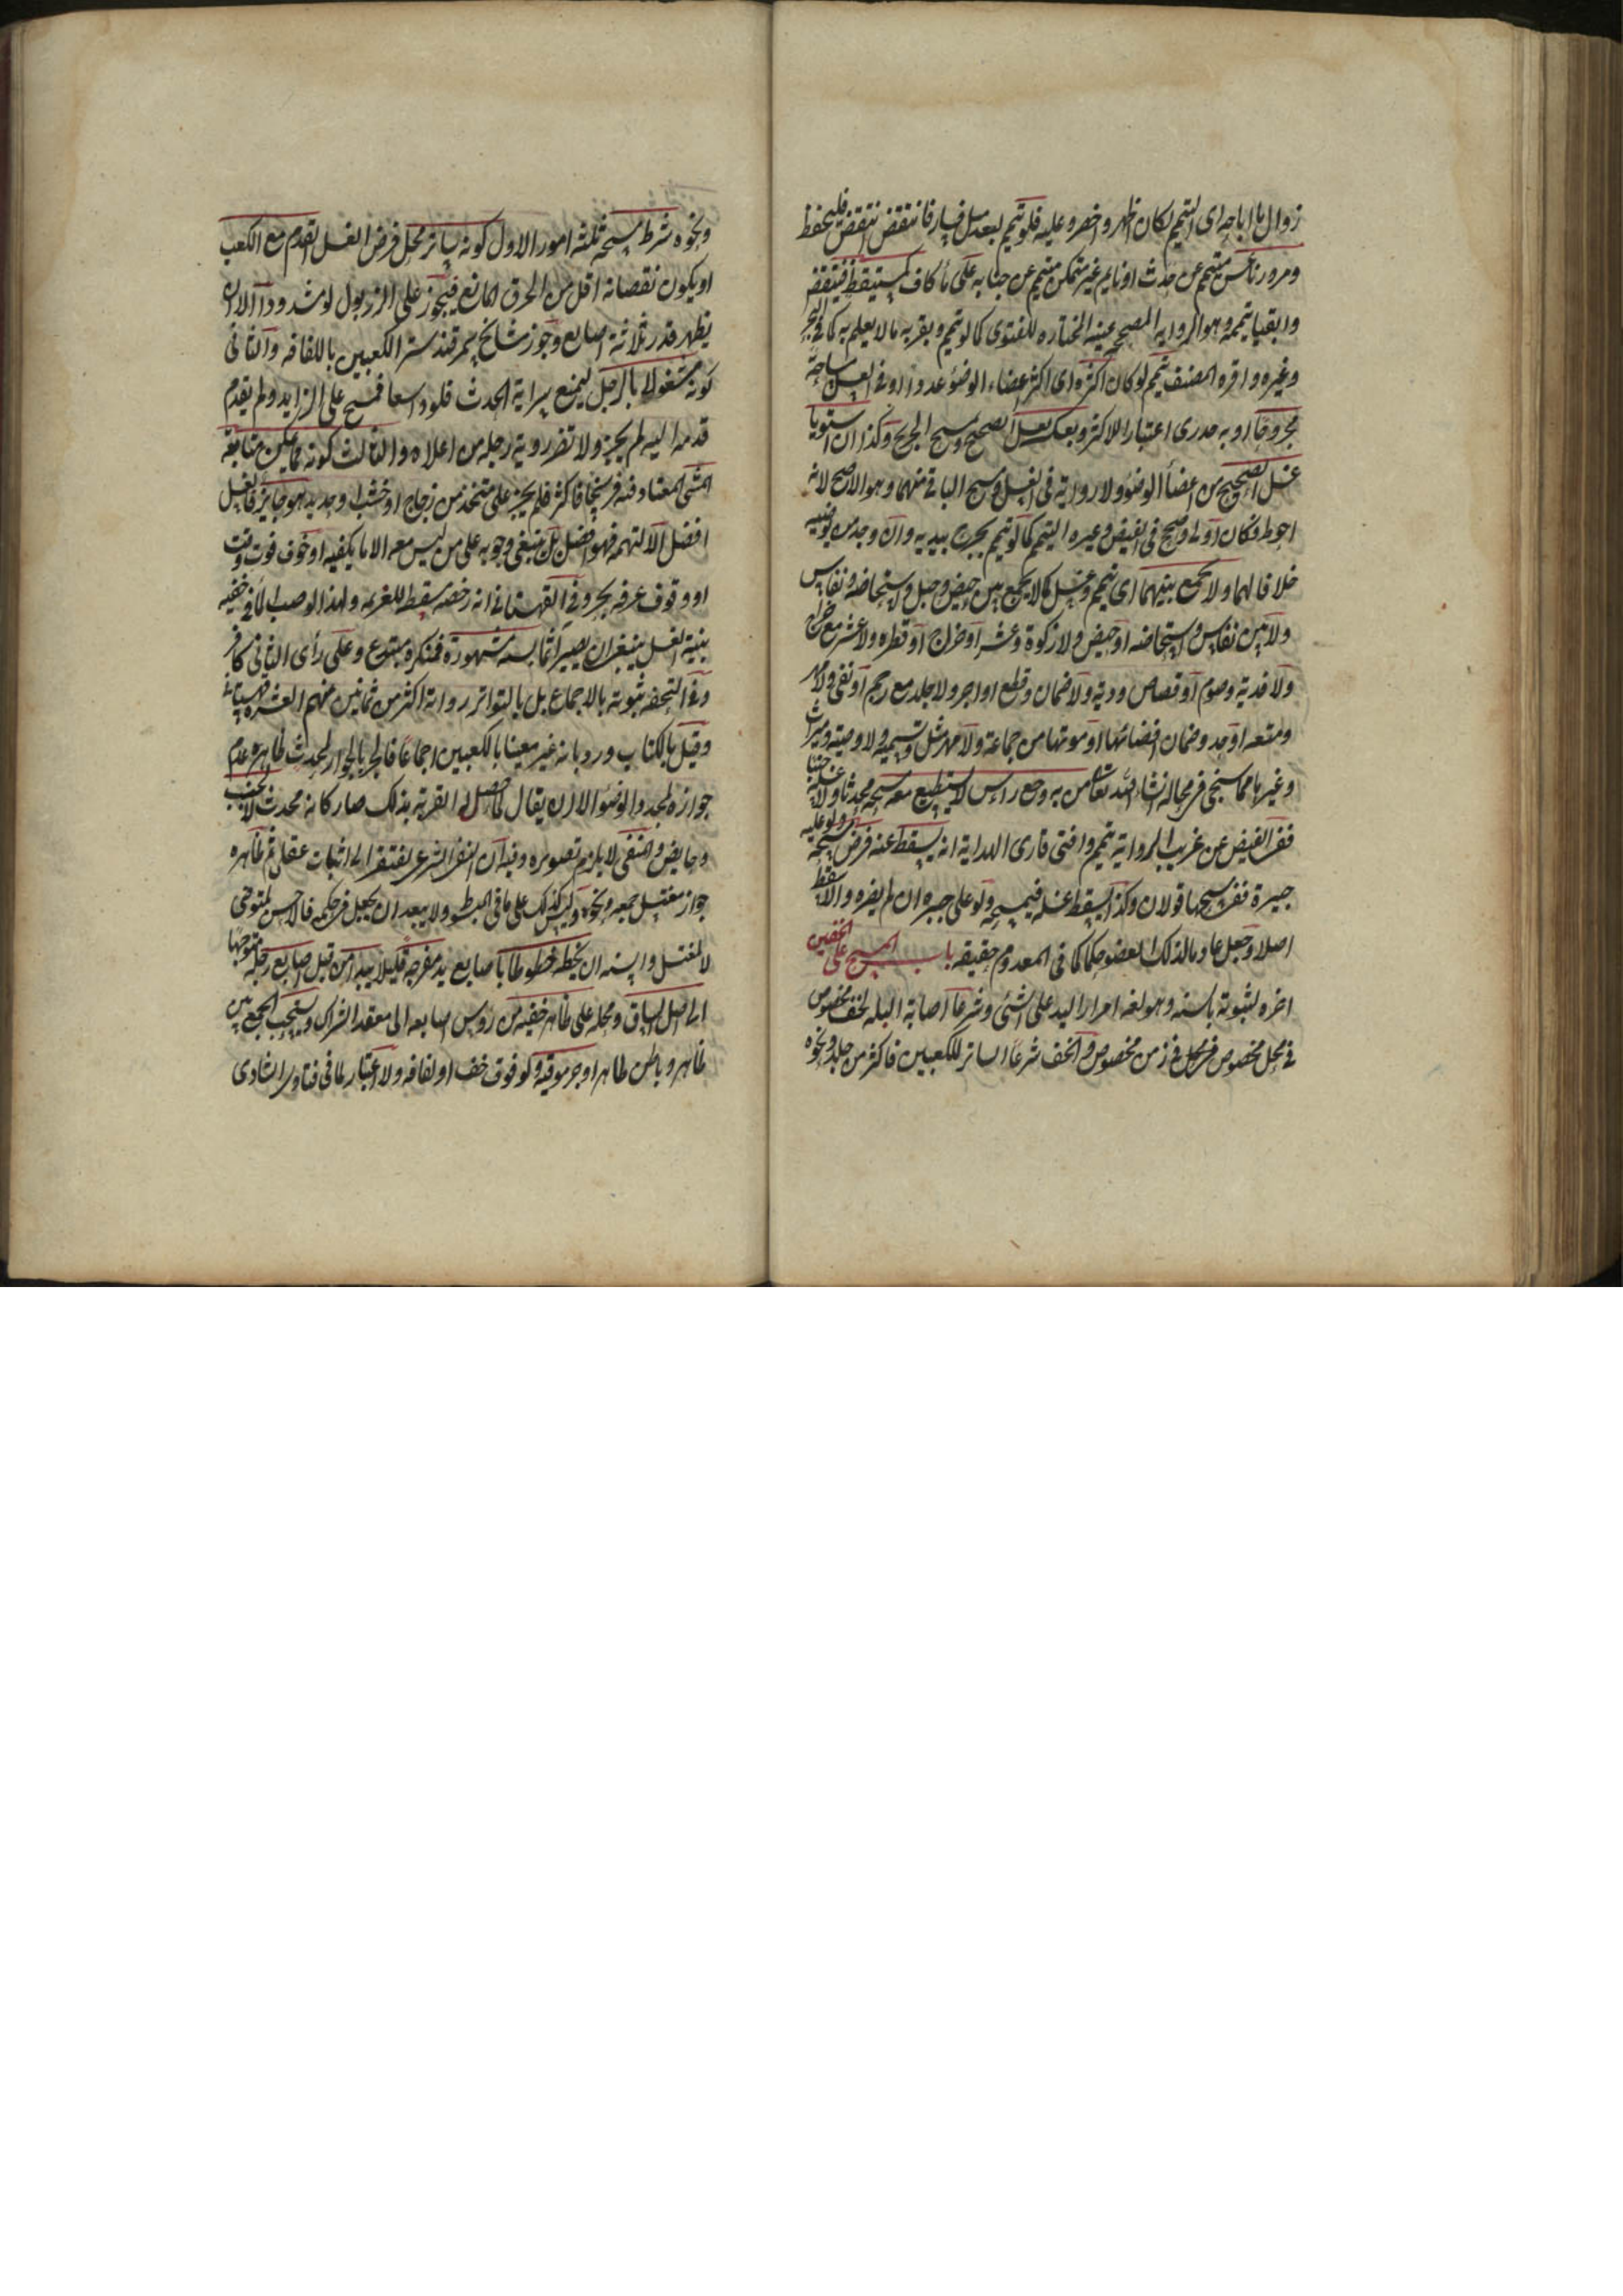 زوال ما اباحه اى التيمم لكان اظهر واخصر وعليه فلو تيمم لبعد ميل فسار فانتقض انتقض فليحفظ
ومرور ناعس متيمم عن حدث او نايم غير متمكن متيمم عن جنابه على ماء كاف كمستيقظ فينتقض
وابقيا تيممه وهو الروايه المصححة عنه المختاره للفتوى كما لو تيمم وبقربه ماء لا يعلم به كما فى البحر
وغيره واقره المصنف تيمم لو كان اكثره اى اكثر اعضاء الوضوء عددا وفى الغسل مساحة
مجروحا او به جدرى اعتبارا للاكثر وبعكسه يغسل الصحيح ويمسح الجريح وكذا ان استويا
غسل الصحيح من اعضأ الوضؤ ولا رواية فى الغسل ومسح الباقى منهما وهو الاصح لانه
احوط فكان اولى وصحح فى الفيض وغيره التيمم كما لو تيمم بجرح بيديه وان وجد من يوضيه
خلافا لهما ولا يجمع بينهما اى تيمم وغسل كما لا يجمع بين حيض وحبل واستحاضه ونفاس
ولا بين نفاس واستحاضه او حيض ولا زكوة وعشر او خراج او فطره ولا عشر مع خراج
ولا فديه وصوم او قصاص وديه ولا ضمان وقطع او اجر ولا جلد مع رجم او نفى ولا مهر
ومتعه او حد وضمان افضائها او موتها من جماعة ولا مهر مثل وتسميه ولا وصيه وميراث
وغيرها مما سيجى فى محاله انشاء الله تعالى من به وجع راس لا يستطيع معه مسحه محدثا ولا غسله جنبا
ففى الفيض عن غريب الروايه تيمم وافتى قارى الهداية انه يسقط عنه فرض مسحه ولو عليه
جبيرة ففى مسحها قولان وكذا يسقط غسله فيمسحه ولو على جبيره ان لم يضره والا سقط
اصلا وجعل عادما لذلك العضو حكما كما فى المعدوم حقيقه باب المسح على الخفين
اخره لثبوته بالسنه وهو لغه امرار اليد على الشئى وشرعا اصابة البله لخف مخصوص
فى محل مخصوص فى زمن مخصوص والخف شرعا الساتر للكعبين فاكثر من جلد ونحوه
ونحوه شرط مسحه ثلثه امور الاول كونه ساتر محل فرض الغسل القدم مع الكعب
او يكون نقصانه اقل من الخرق المانع فيجوز على الزربول لو مشدودا الا ان
يظهر قدر ثلاثة اصابع وجوز مشايخ سمرقند ستر الكعبين باللفافه والثانى
كونه مشغولا بالرجل ليمنع سراية الحدث فلو واسعا فمسح على الزايد ولم يقدم
قدمه اليه لم يجز ولا تضر روية رجله من اعلاه والثالث كونه مما يمكن متابعة
المشى المعتاد فيه فرسخا فاكثر فلم يجز على متخذ من زجاج او خشب او حديد هو جايز فالغسل
افضل الا لتهمه فهو افضل بل ينبغى وجوبه على من ليس معه الا ما يكفيه او خوف فوت وقت
او وقوف عرفه بحر وفى القهستانى انه رخصه مسقطه للعزيمه ولهذا لو صب الماء فى خفيه
بنية الغسل ينبغى ان يصير اثما بسنه مشهورة فمنكره مبتدع وعلى رأى الثانى كافر
وفى التحفه ثبوته بالاجماع بل بالتواتر رواته اكثر من ثمانين منهم العشره قهستانى
وقيل بالكتاب ورد بانه غير مغيا بالكعبين اجماعا فالجر بالجوار لمحدث ظاهره عدم
جوازه لمجدد الوضؤ الا ان يقال لما حصل له القربة بذلك صار كانه محدث لا لجنب
وحايض والمنفى لا يلزم تصويره وفيه ان النفى الشرعى يفتقر الى اثبات عقلى ثم ظاهره
جواز مغتسل جمعه ونحوه وليس كذلك على ما فى المبسوط ولا يبعد ان يجعل فى حكمه فالاحسن لمتوضى
لا لمغتسل والسنه ان يخطه خطوطا باصابع يد مفرجه قليلا يبدا من قبل اصابع رجله متوجها
الى اصل الساق ومحله على ظاهر خفيه من رؤس اصابعه الى معقد الشراك ويستحب الجمع بين
ظاهر وباطن طاهر او جرموقيه ولو فوق خف او لفافه ولا اعتبار لما فى فتاوى الشاذى